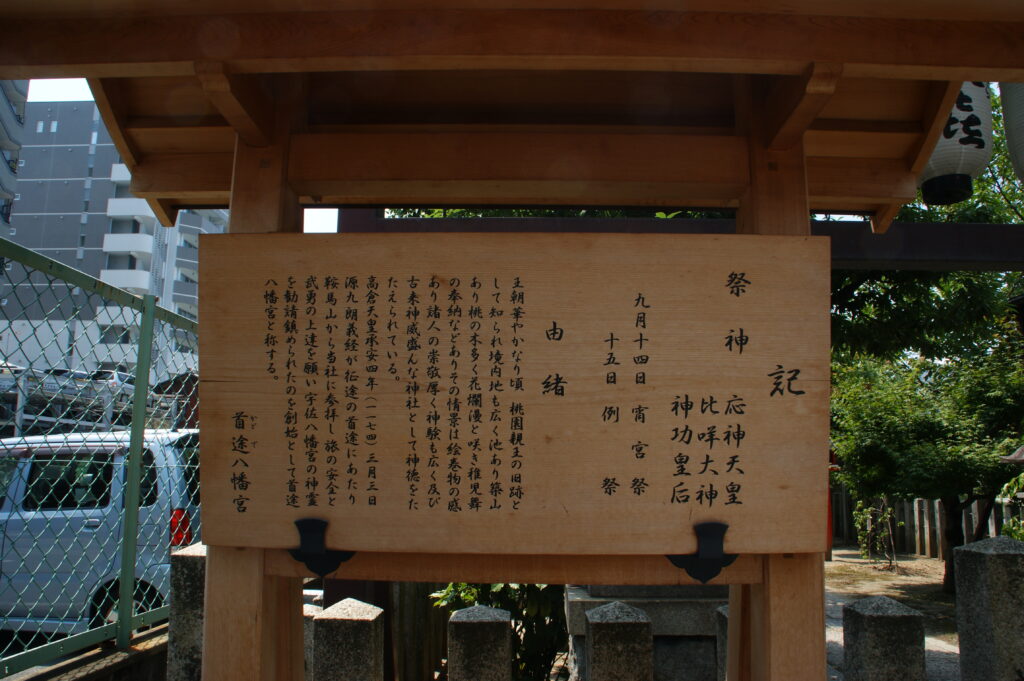 記
祭神 応神天皇
比咩大神
神功皇后
九月十四日 宵宮祭
十五日 例祭
由緒
王朝華やかなり頃 桃園親王の旧跡と
して知られ境内地も広く池あり築山
あり桃の木多く花爛漫と咲き稚児舞
の奉納などありその情景は絵巻物の感
あり諸人の崇敬厚く神験も広く及び
古来神威盛んな神社として神徳をた
たえられている。
高倉天皇承安四年(一一七四)三月三日
源九朗義経が征途の首途にあたり
鞍馬山から当社に参拝し旅の安全と
武勇の上達を願い宇佐八幡宮の神霊
を勧請鎮められたのを創始として首途
八幡宮と称する。
首途八幡宮
かどで